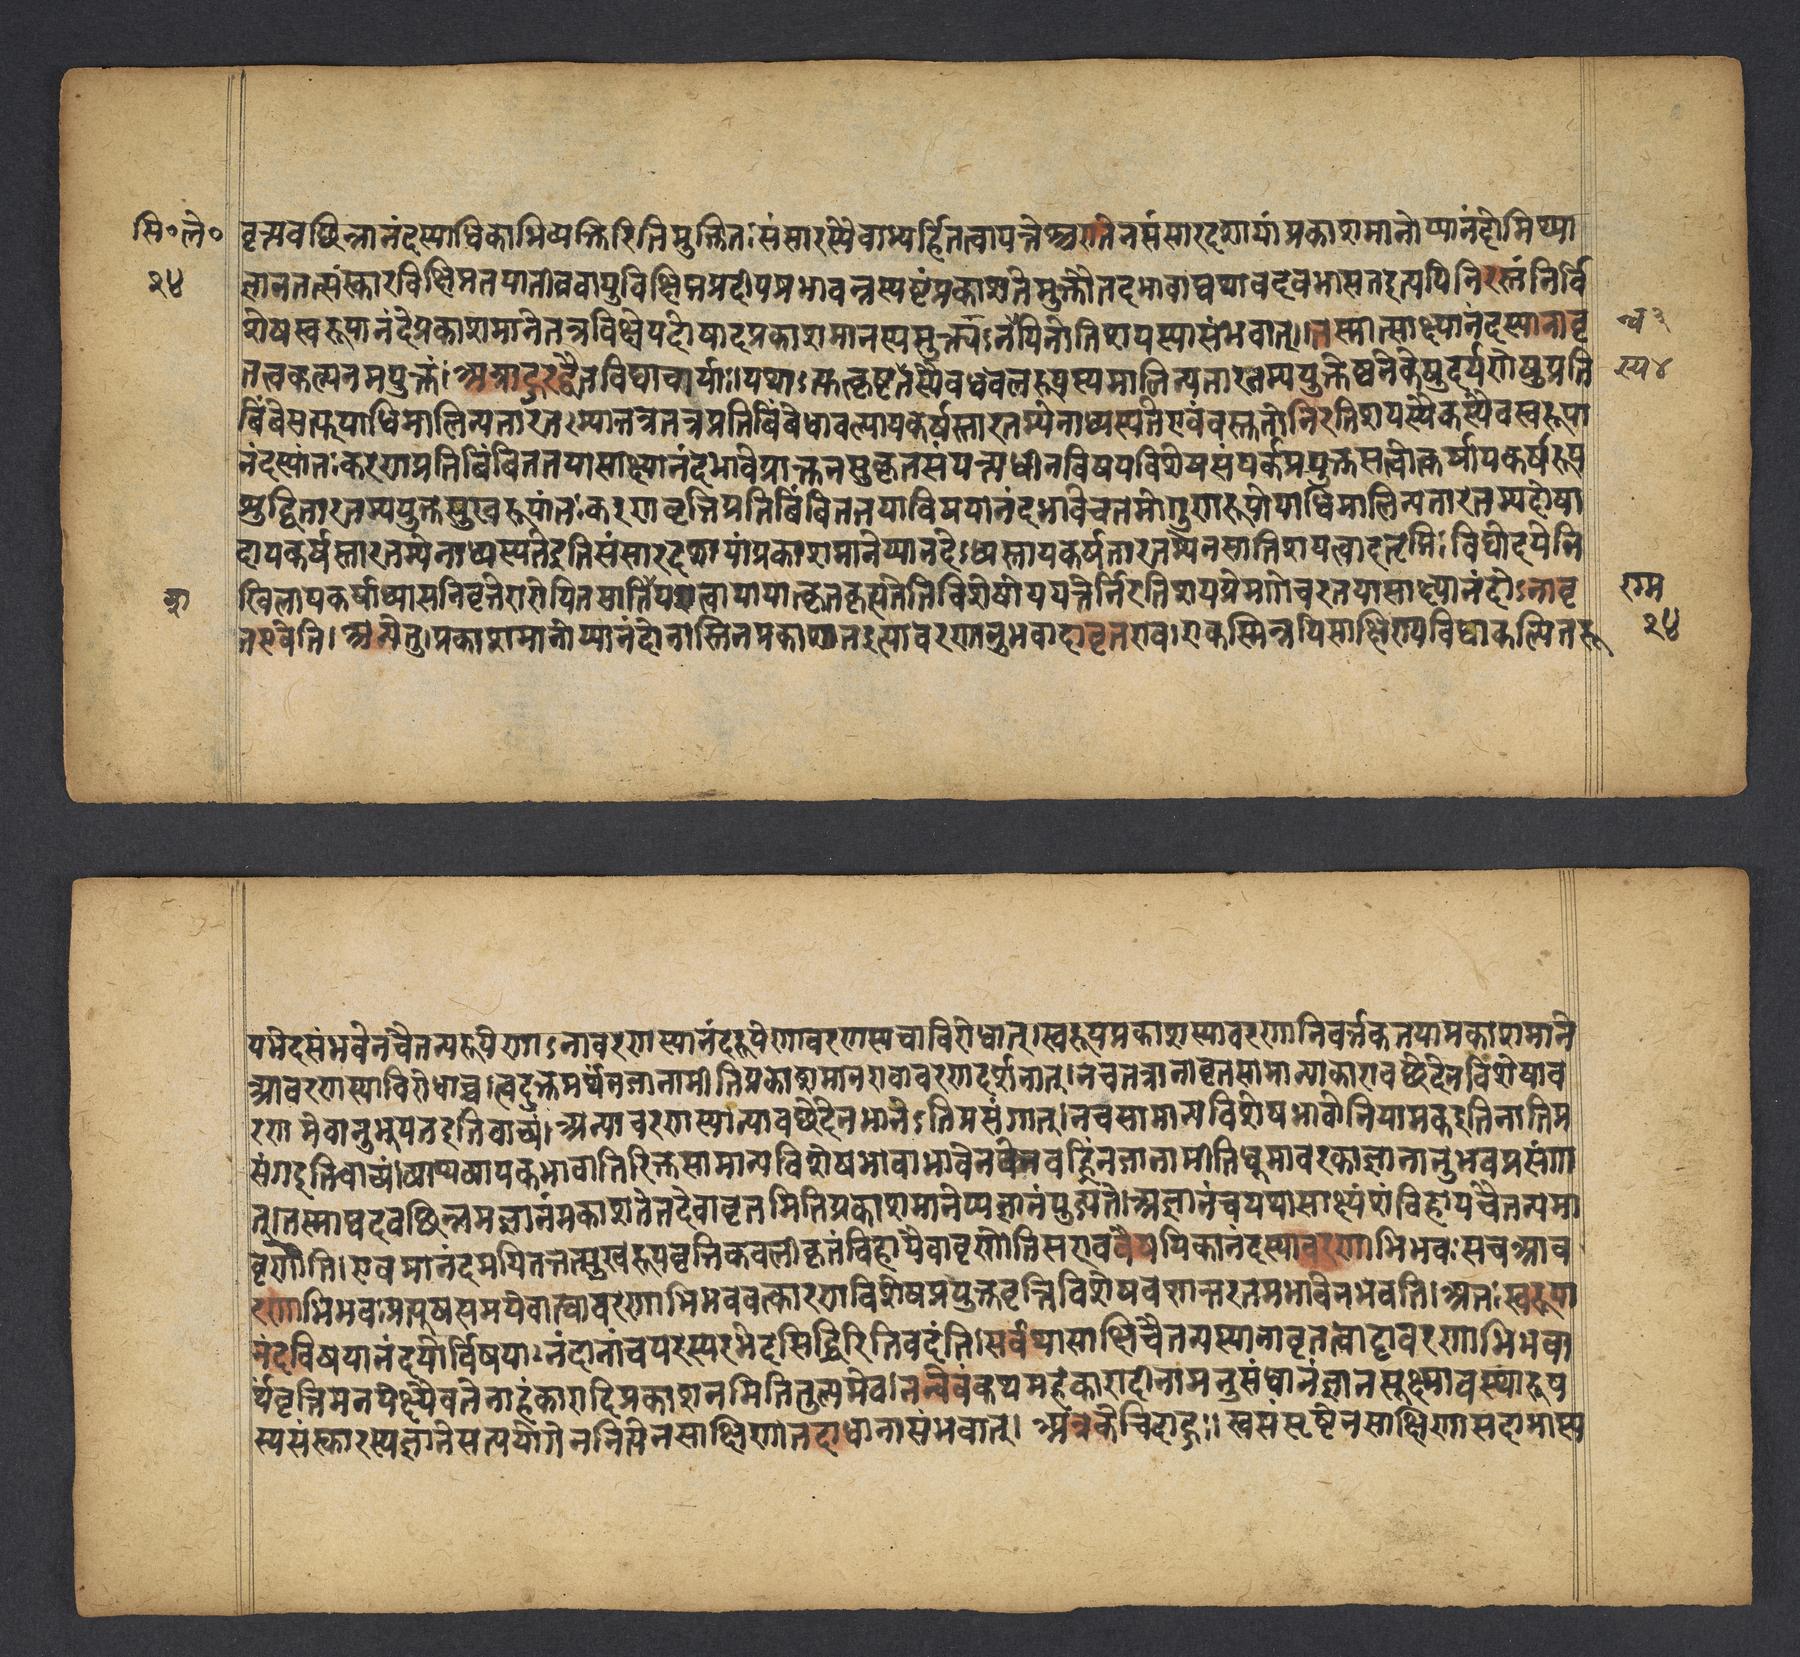 सि॰ले॰
२४
वृत्यवछिन्नानंदस्याधिकाभिव्यक्तिरिति मुक्तितः संसारस्यैवाभ्यर्हितत्वापत्तेश्च एतेन संसारदशायां प्रकाशमानोप्यानंदो मिथ्या
ज्ञानतत्संस्कारविक्षिप्ततया तीव्रवायुविक्षिप्तप्रदीपप्रभावन्न स्पष्टं प्रकाशते मुक्तौ तदभावाद्यथावदवभासत इत्यपि निरस्तं निर्वि
शेषस्वरूपानंदे प्रकाशमाने तत्र विक्षेपदोषादप्रकाशमानस्य मुक्त्यन्वयिनोतिशयस्यासंभवात् ॥ तस्मात्साक्ष्यानंदस्यानावृ
न्व ३
तत्वकल्पनमयुक्तं । अत्राहुरद्वैतविद्याचार्याः । यथा ऽत्युत्कृष्टस्यैव धवलरूपस्य मालिन्यतारतम्ययुक्तेष्वनेकेषु दर्पणेषु प्रति
स्य ४
बिंबे सत्युपाधिमालिन्यतारतम्यात्तत्र तत्र प्रतिबिंबे धावल्यापकर्षस्तारतम्येनाध्यस्यते एवं वस्तुतो निरतिशयस्यैकस्यैव स्वरूपा
नंदस्यांतःकरणप्रतिबिंबिततया साक्ष्यानंदभावे प्राक्तनसुकृतसंपत्यधीनविषयविशेषसंपर्कप्रयुक्तसत्वोत्कर्षापकर्षरूप
शुद्धितारतम्ययुक्तसुखरूपांतःकरणवृत्तिप्रतिबिंबिततया विषयानंदभावे च तमोगुणरूपोपाधिमालिन्यतारतम्यदोषा
दपकर्षस्तारतम्येनाध्यस्यते इति संसारदशायां प्रकाशमानेप्यानंदे ऽध्यस्तापकर्षतारतम्येन सातिशयत्वादतृप्तिः विद्योदये नि
खिलापकर्षाध्यासनिवृत्तेरारोपितसातिशयत्वापायात्कृतकृत्यतेति विशेषोपपत्तेर्निरतिशयप्रेमगोचरतया साक्ष्यानंदो ऽनावृ
त एवेति । अन्ये तु । प्रकाशमानोप्यानंदो नास्ति न प्रकाशत इत्यावरणानुभवादावृत एव । एकस्मिन्नपि साक्षिण्यविद्याकल्पितरू
राम
२४
पभेदसंभवेन चैतन्यरूपेणा ऽनावरणस्यानंदरूपेणावरणस्य चाविरोधात् । स्वरूपप्रकाशस्यावरणानिवर्त्तकतया प्रकाशमाने
आवरणस्याविरोधाच्च । त्वदुक्तमर्थं न जानामीति प्रकाशमान एवावरणदर्शनात् । न च तत्रानावृतसामान्याकारावछेदेन विशेषाव
रणमेवानुभूयत इति वाच्यं । अन्यावरणस्यान्यावछेदेन भाने ऽतिप्रसंगात् । न च सामान्यविशेषभावो नियामक इति नातिप्र
संग इति वाच्यं । व्याप्यव्यापकभावातिरिक्तसामान्यविशेषभावाभावेन वह्निं न जानामीति धूमावरकाज्ञानानुभवप्रसंगा
त् । तस्माद्यदवछिन्नमज्ञानं प्रकाशते तदेवावृतमिति प्रकाशमानेप्यज्ञानं युज्यते । अज्ञानं च यथा साक्ष्यंशं विहाय चैतन्यमा
वृणोति । एवमानंदमपि तत्तत्सुखरूपवृत्तिकवलीकृतं विहायैवावृणोति स एव वैषयिकानंदस्यावरणाभिभवः स च आव
रणाभिभवः प्रत्यूषसमये वात्यावरणाभिभववत्कारणविशेषप्रयुक्तवृत्तिविशेषवशात्तरतमभावेन भवति । अतः स्वरूपा
नंदविषयानंदयोर्विषयानंदानां च परस्परभेदसिद्धिरिति वदंति । सर्वथा साक्षिचैतन्यस्यानावृतत्वाद्दावरणाभिभवा
र्थवृत्तिमनपेक्ष्यैव तेनाहंकारादिप्रकाशनमिति तुल्यमेव । नन्वेवं कथमहंकारादीनामनुसंधानं ज्ञानसूक्ष्मावस्थारूप
स्य संस्कारस्य ज्ञाने सत्ययोगेन नित्येन साक्षिणा तदाधानासंभवात् । अत्र केचिदाहुः । स्वसंसृष्टेन साक्षिणा सदा भास्य